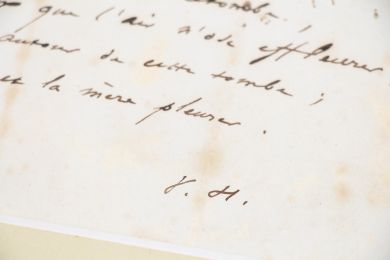 que l'air n'ose effleurer
autour de cette tombe ;
et la mère pleurer.
V. H.